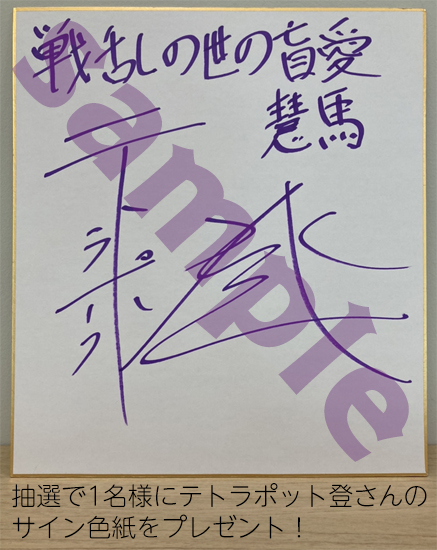 戦乱の世の盲愛
慧馬
sample
抽選で1名様にテトラポット登さんの
サイン色紙をプレゼント！